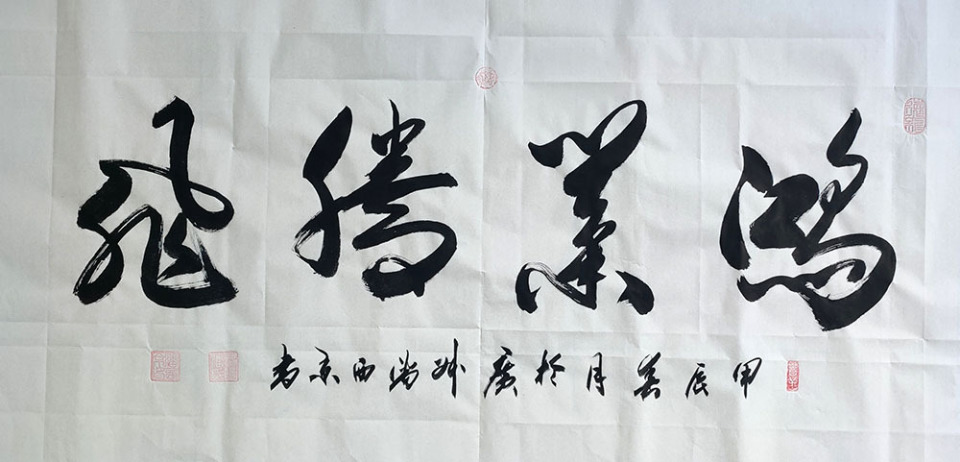 鴻業騰飛
甲辰月於廣州西京書